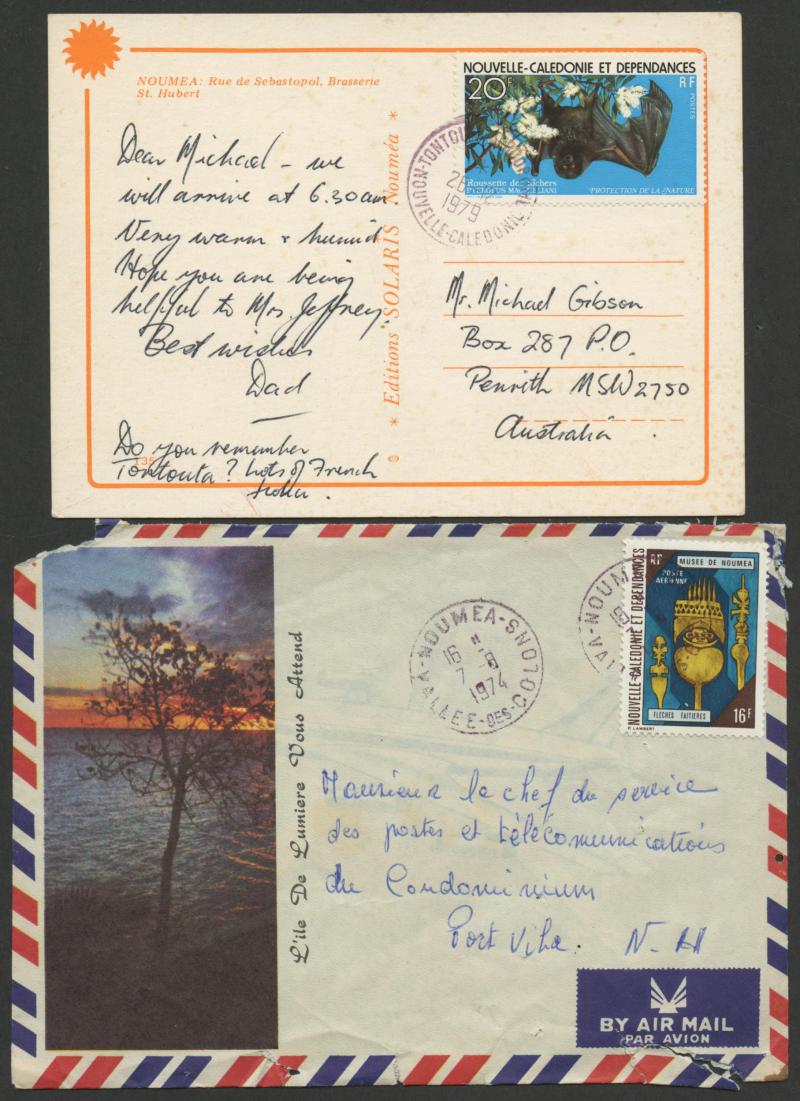 NOUMEA: Rue de Sebastopol, Brasserie
St. Hubert
Dear Michael - we
will arrive at 6.30am
Very warm + humid
Hope you are being
helpful to Mrs. Jeffrey.
Best wishes
Dad
Do you remember
Tontouta? Lots of French
135
* Editions SOLARIS Nouméa *
©
NOUVELLE-CALEDONIE ET DEPENDANCES
20F
RF
POSTES
Roussette des rochers
PTEROPUS MACMILLANI
PROTECTION DE LA NATURE
TONTOUTA
1979
NOUVELLE-CALEDONIE
Mr. Michael Gibson
Box 287 P.O.
Penrith NSW 2750
Australia.
L'ile De Lumiere Vous Attend
NOUMEA-VALLEE-DES-COLONS
16 H
7 -8
1974
NOUMEA
RF
MUSEE DE NOUMEA
POSTE
AERIENNE
NOUVELLE-CALEDONIE ET DEPENDANCES
FLECHES FAITIERES
16F
P. LAMBERT
Monsieur le chef du service
des postes et télécomunications
du Condominium
Port Vila. N. H
BY AIR MAIL
PAR AVION